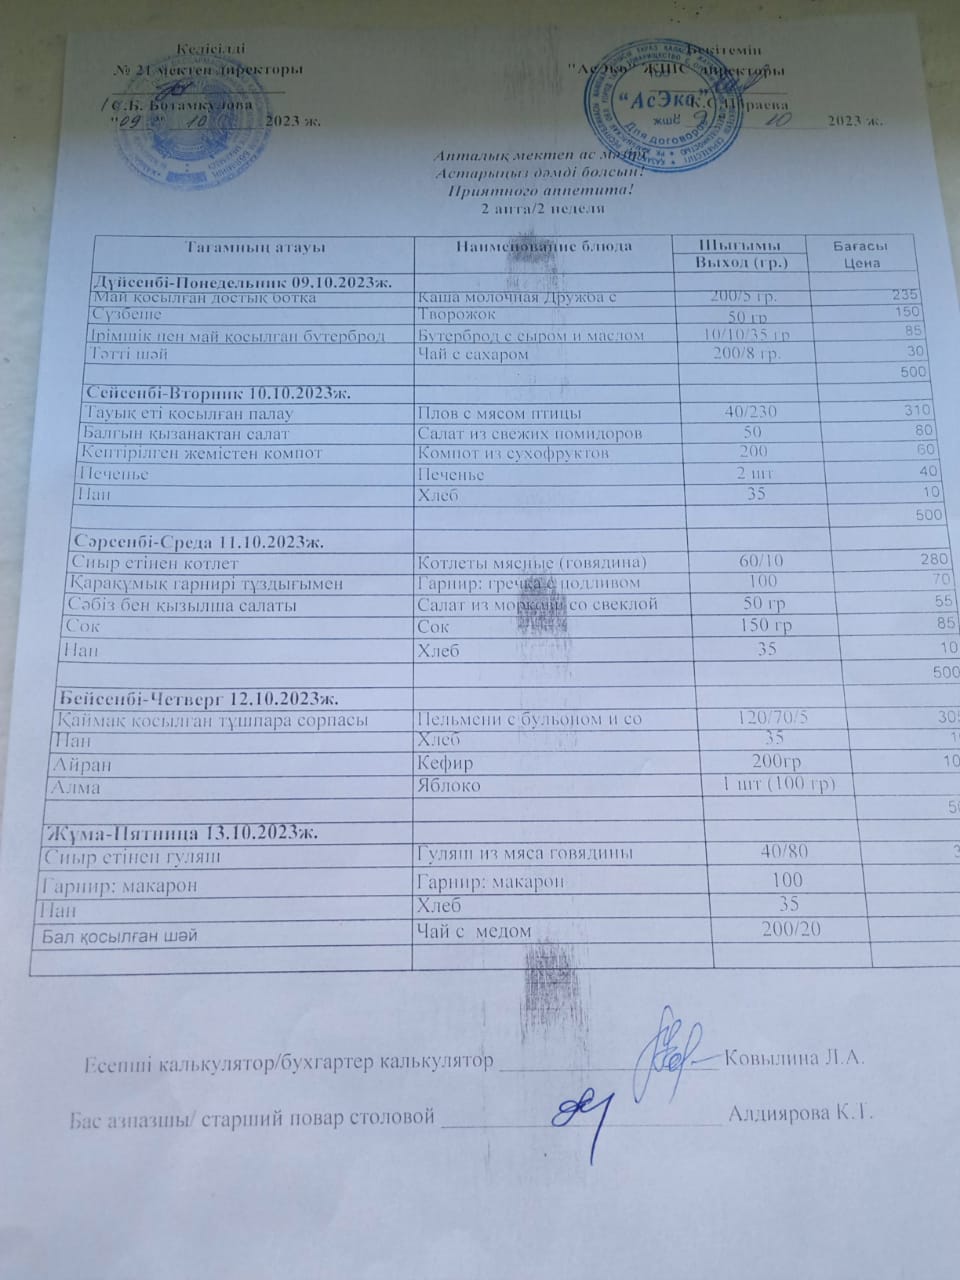 Келісілді
№ 21 мектеп директоры
С.Б. Ботамкулова
"09" 10 2023 ж.
Бекітемін
"АсЭко" ЖШС директоры
"АсЭко"
жшс
Для договоров
10 2023 ж.
Апталық мектеп ас мәзірі
Астарыңыз дәмді болсын!
Приятного аппетита!
2 апта/2 неделя
Тағамның атауы Наименование блюда Шығымы Бағасы
Выход (гр.) Цена
Дүйсенбі-Понедельник 09.10.2023ж.
Май қосылған достық ботқа Каша молочная Дружба с 200/5 гр. 235
Сүзбеше Творожок 50 гр 150
Ірімшік пен май қосылған бутерброд Бутерброд с сыром и маслом 10/10/35 гр 85
Тәтті шәй Чай с сахаром 200/8 гр. 30
500
Сейсенбі-Вторник 10.10.2023ж.
Тауық еті қосылған палау Плов с мясом птицы 40/230 310
Балғын қызанақтан салат Салат из свежих помидоров 50 80
Кептірілген жемістен компот Компот из сухофруктов 200 60
Печенье Печенье 2 шт 40
Нан Хлеб 35 10
500
Сәрсенбі-Среда 11.10.2023ж.
Сиыр етінен котлет Котлеты мясные (говядина) 60/10 280
Қарақұмық гарнирі тұздығымен Гарнир: гречка с подливом 100 70
Сәбіз бен қызылша салаты Салат из моркови со свеклой 50 гр 55
Сок Сок 150 гр 85
Нан Хлеб 35 10
500
Бейсенбі-Четверг 12.10.2023ж.
Қаймақ қосылған тұшпара сорпасы Пельмени с бульоном и со 120/70/5 305
Нан Хлеб 35
Айран Кефир 200гр 10
Алма Яблоко 1 шт (100 гр)
Жұма-Пятница 13.10.2023ж.
Сиыр етінен гуляш Гуляш из мяса говядины 40/80 3
Гарнир: макарон Гарнир: макарон 100
Нан Хлеб 35
Бал қосылған шәй Чай с медом 200/20
Есепші калькулятор/бухгартер калькулятор Ковылина Л.А.
Бас азпазшы/ старший повар столовой Алдиярова К.Т.